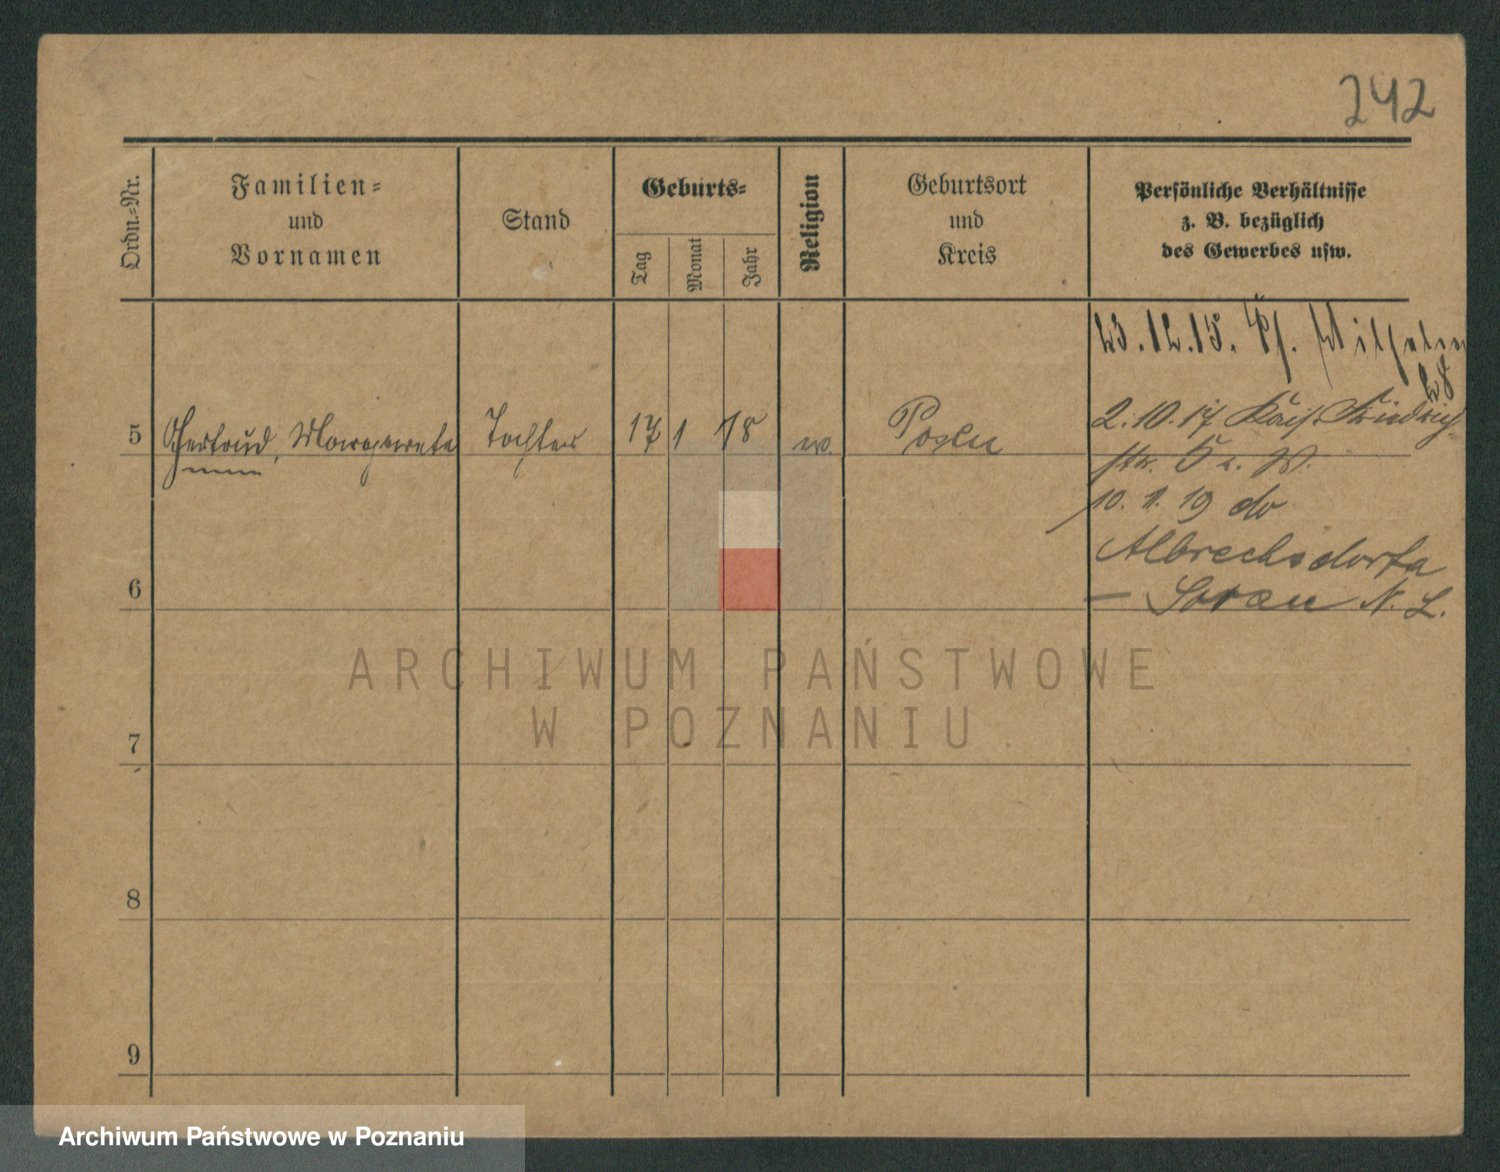 242
Ordn.=Nr.
Familien=
und
Vornamen
Stand
Geburts=
Tag
Monat
Jahr
Religion
Geburtsort
und
Kreis
Persönliche Verhältnisse
z. B. bezüglich
des Gewerbes usw.
23.12.15. Wilhelm
28
5 Gertrud, Margarete Tochter 17 1 18 ev. Posen
2.10.17 Kais. Friedrich
str. 5
10. 1. 19
Albrechsdorfa
6
– Sorau N. L.
ARCHIWUM PAŃSTWOWE
W POZNANIU
7
8
9
Archiwum Państwowe w Poznaniu